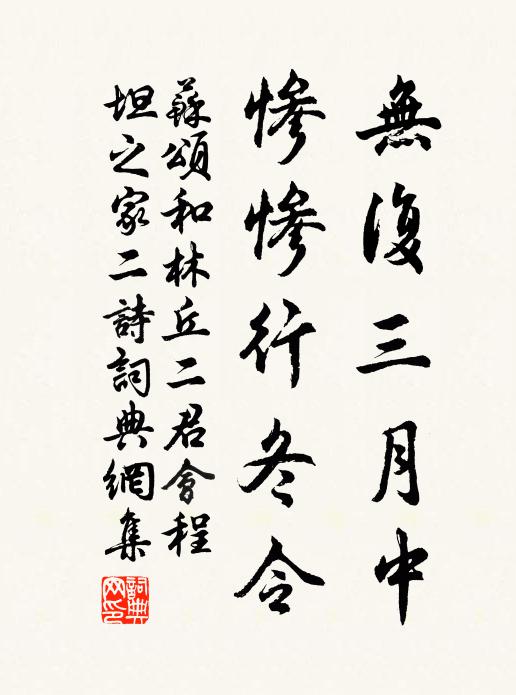 無復三月中
慘慘行冬令
蘇頌和林丘二君會程
坦之家二詩詞典網集
詞典
网印